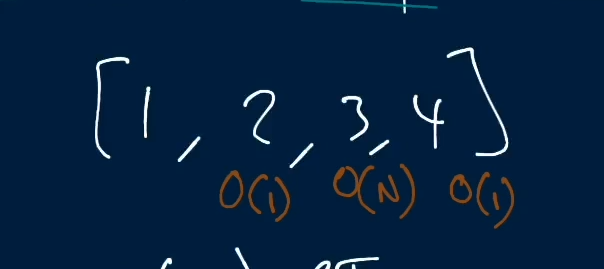 [1, 2, 3, 4]
O(1) O(N) O(1)